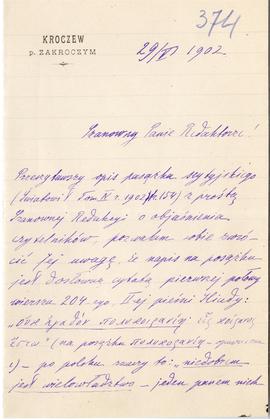 KROCZEW
p. ZAKROCZYM
374
29/VI 1902
Szanowny Panie Redaktorze!
Przeczytawszy opis posążka scytyjskiego
("Światowit" Tom IV r. 1902, str. 154) z prośbą
Szanownej Redakcyi o objaśnienia
czytelników, pozwalam sobie zwró-
cić jej uwagę, że napis na posążku
jest dosłowną cytatą pierwszej połowy
wiersza 204-ego II-ej pieśni Iliady:
"οὐκ ἀγαθὸν πολυκοιρανίη: εἷς κοίρανος
ἔστω" (na posążku πολυκοιρανίη
) – po polsku znaczy to: "niedobrem
jest wielowładztwo – jeden panem niech